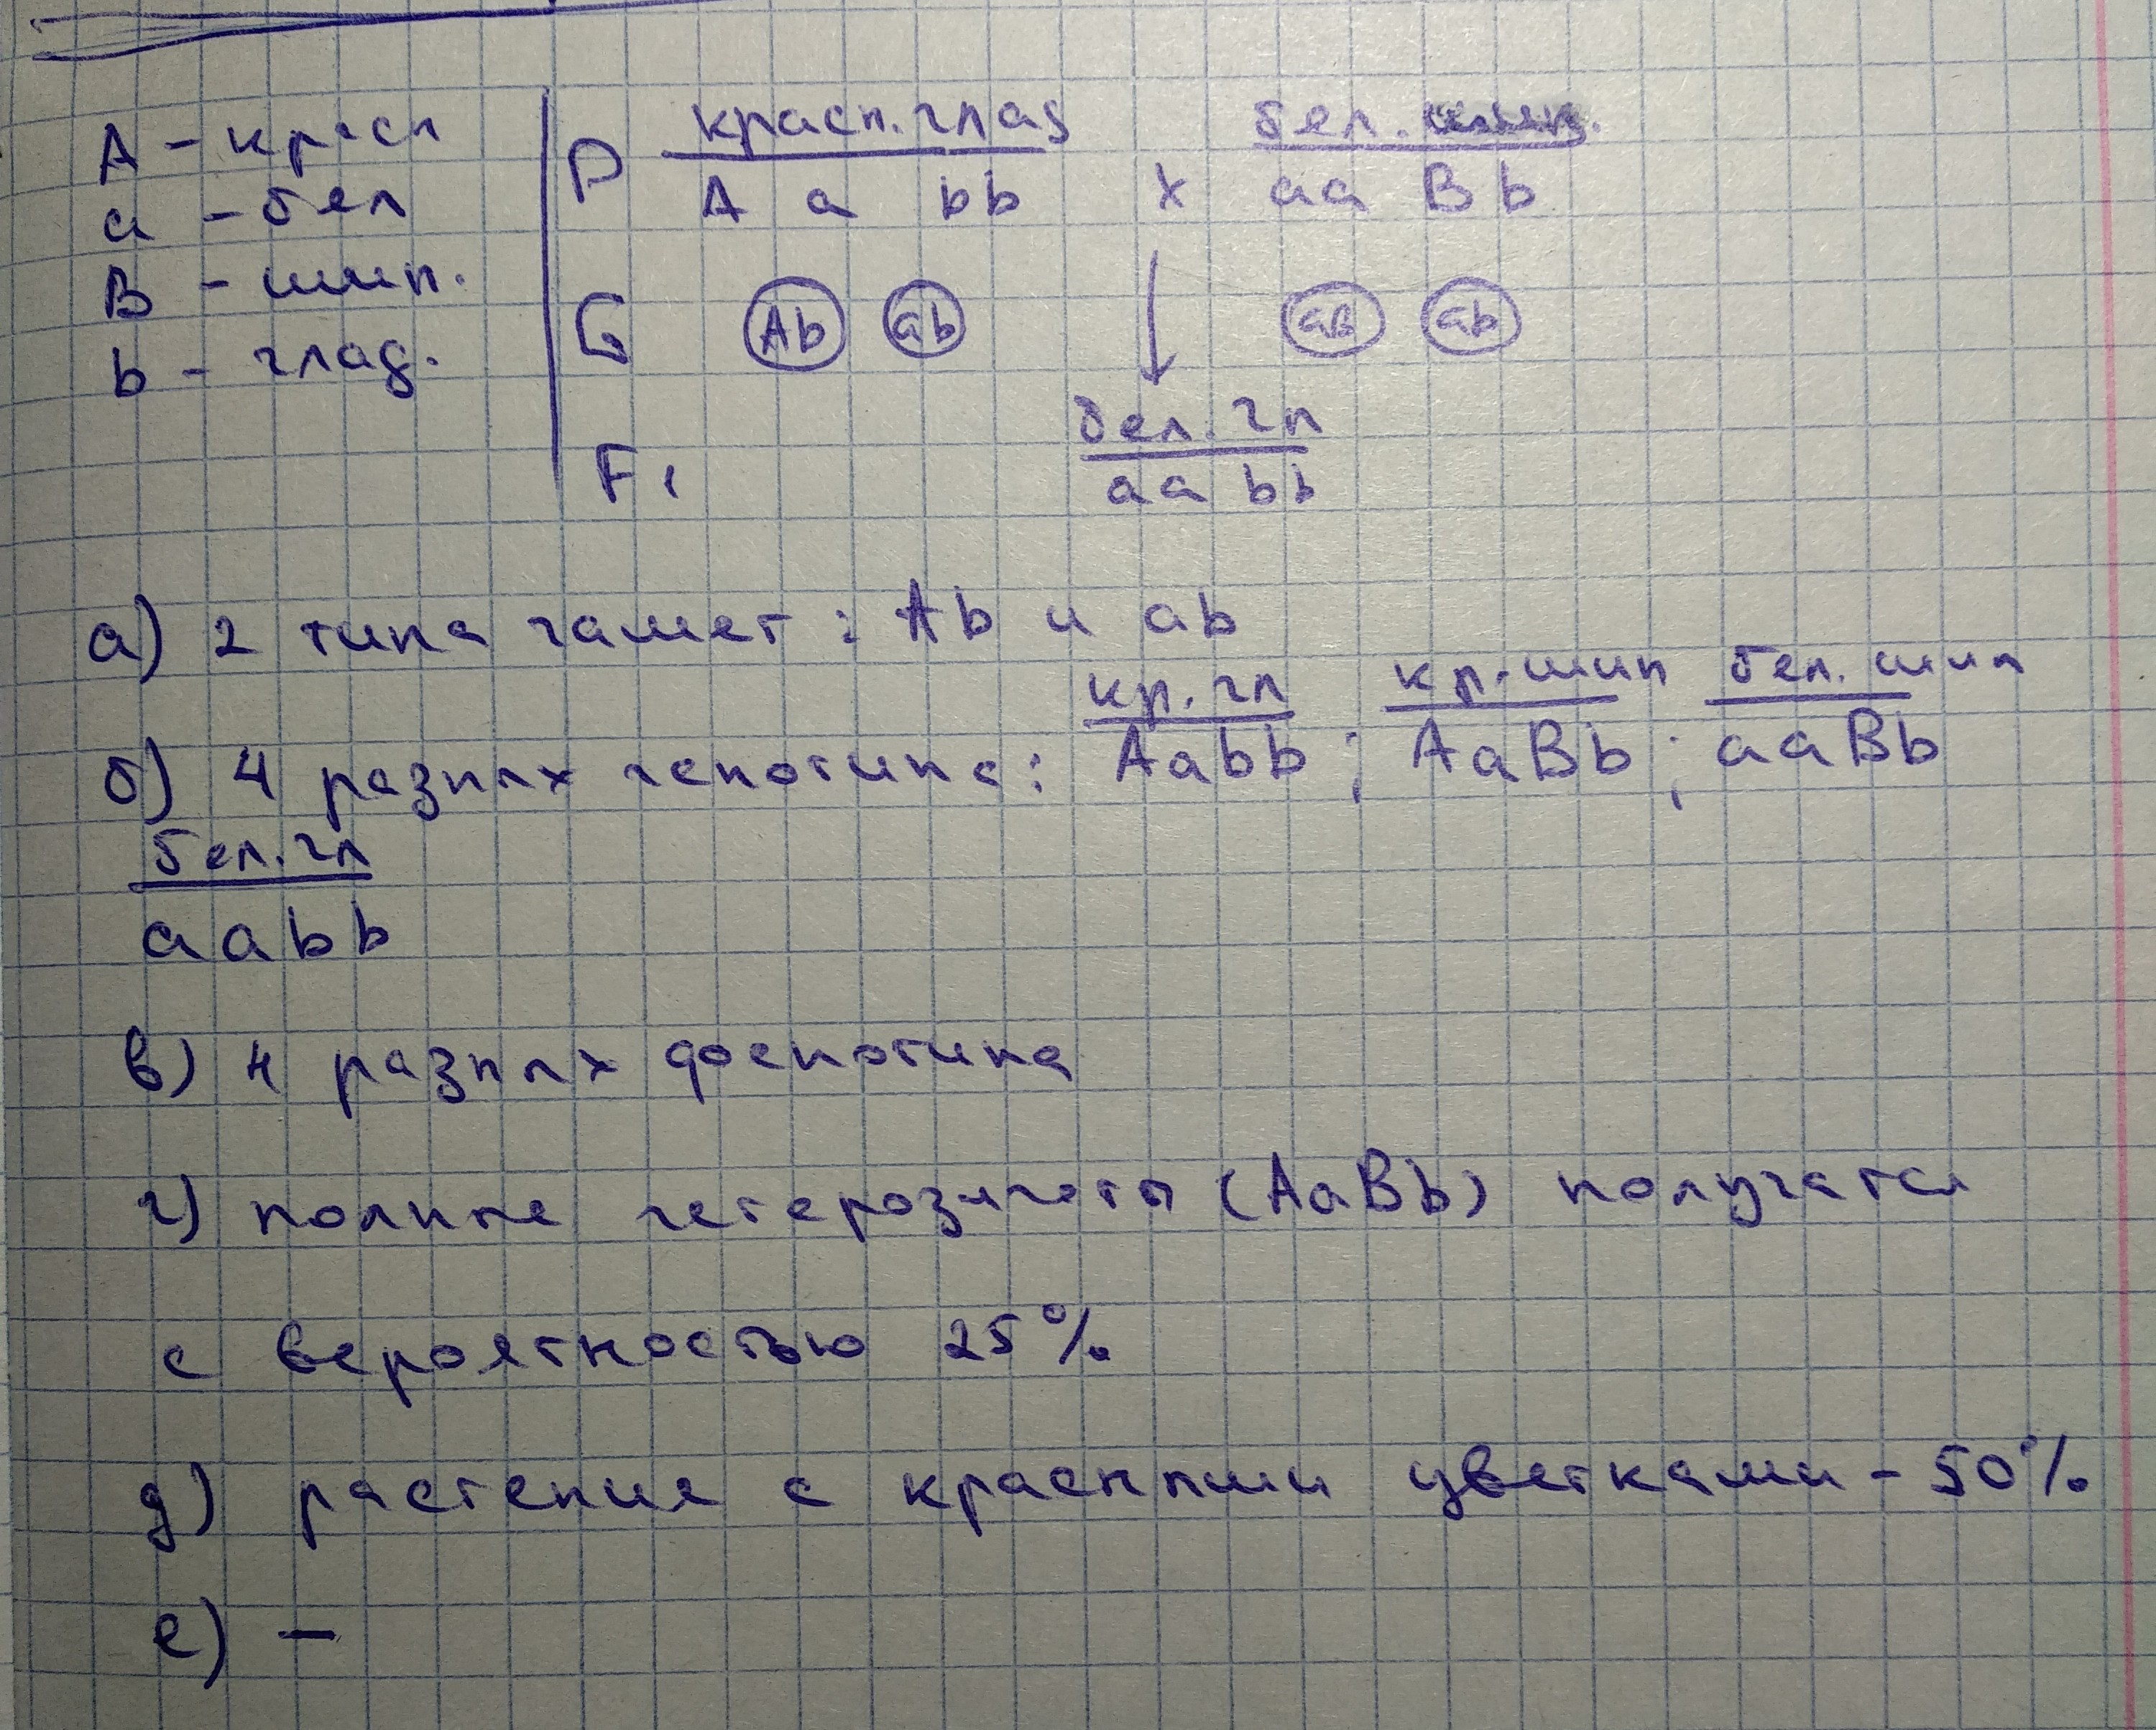 A - красн
a - бел
B - шип.
b - глад.
P красн. глад бел. шип.
A a bb x aa Bb
G Ab ab aB ab
F1 бел. гл
aa bb
а) 2 типа гамет: Ab и ab
кр. гл кр. шип бел. шип
б) 4 разных генотипа: Aabb; AaBb; aaBb
бел. гл
aabb
в) 4 разных фенотипа
г) полные гетерозиготы (AaBb) получатся
с вероятностью 25%
д) растения с красными цветками - 50%
е) —